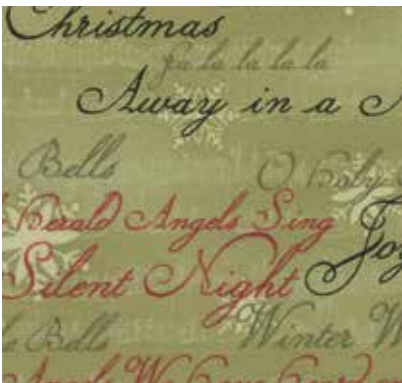 Christmas
fa la la la la
Away in a
Bells
O Baby
Herald Angels Sing
Silent Night
Joy
Bells
Winter W
Angels We Have Heard on